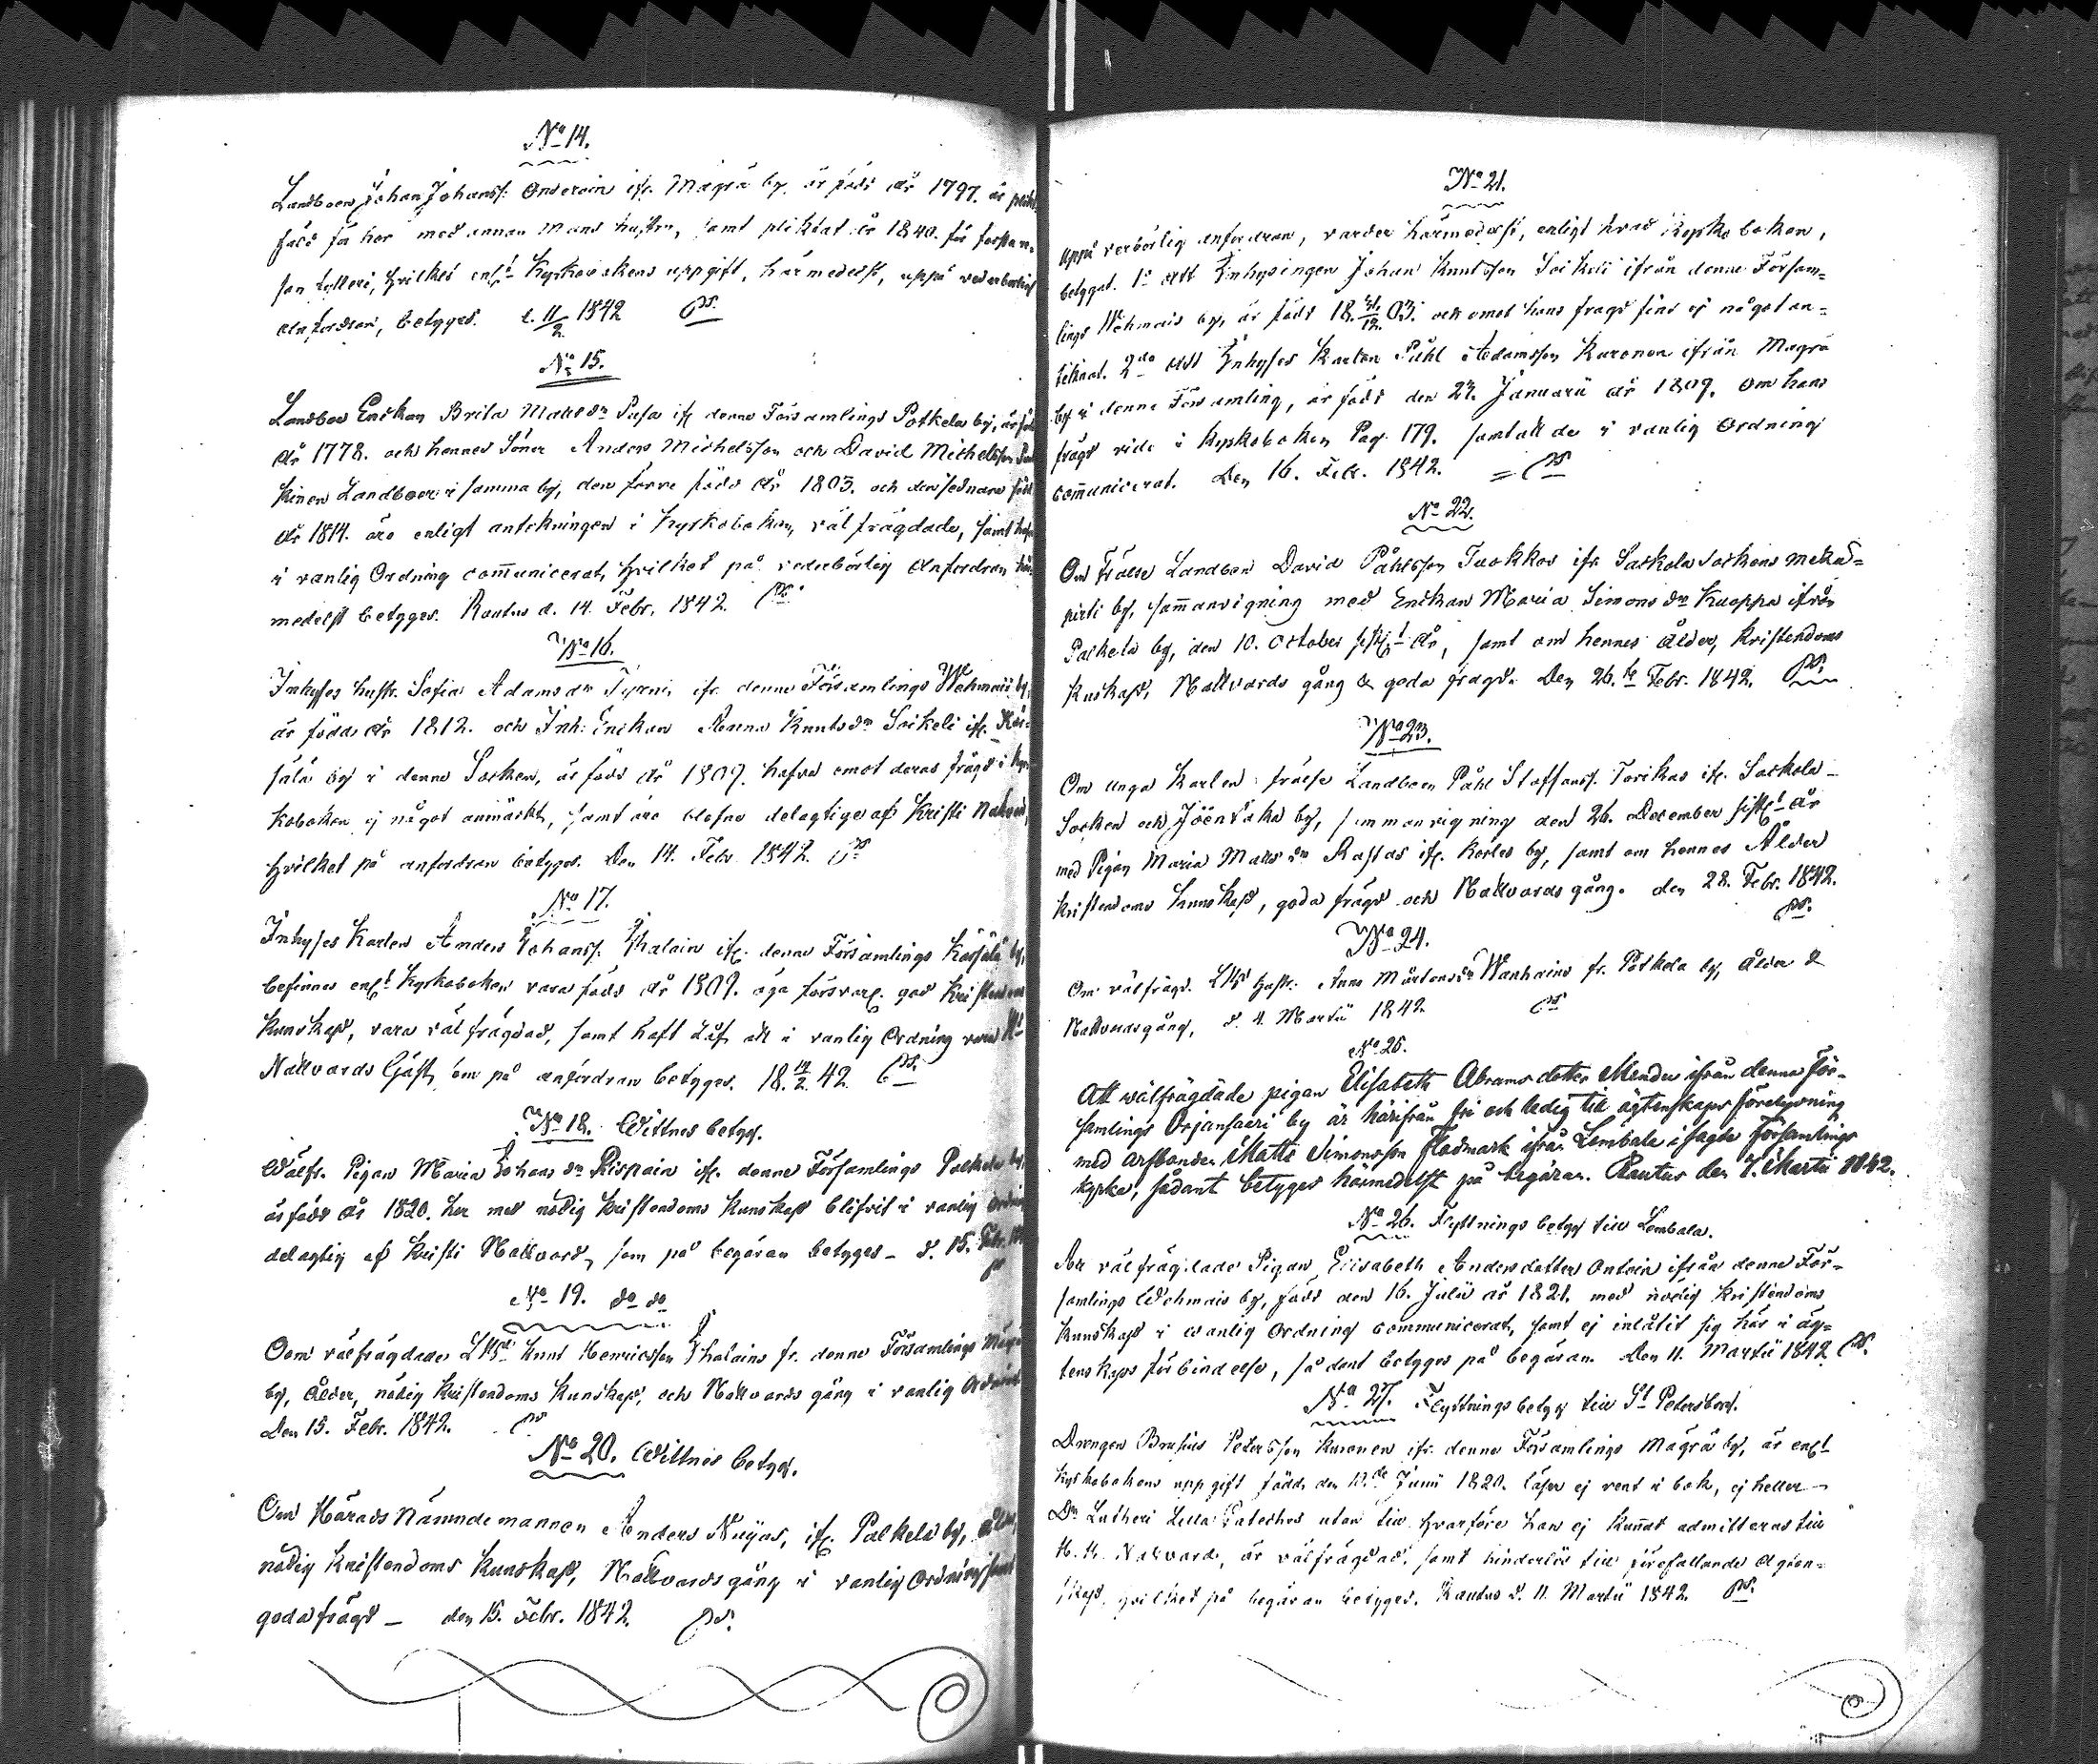 No 14.
Landboen Johan Johanss. Onderain ifr. Mägrä by, är född år 1797. är
född för hor med annan mans hustru, samt pliktat år 1840. för
fylleri, hvilket enl. Kyrkobokens uppgift, härmedelst, uppå vederbörlig
anfordran, betyges. d. 11/2 1842
No 15.
Landboe Enckan Brita Mattsdr Pusa ifr denne Församlings Potkela by, är
år 1778. och hennes Söner Anders Michelsson och David Michelsson
kinen Landboer i samma by, den förre född år 1803. och den sednare född
år 1814. äro enligt anteckningen i Kyrkoboken, väl frägdade, samt
i vanlig Ordning communicerat, hvilket på vederbörlig Anfordran
medelst betyges. Rautus d. 14. Febr. 1842.
No 16.
Inhyses hustr. Sofia Adamsdr Tyrni ifr. denne Församlings Wehmais by,
är född år 1812. och Inh: Enckan Anna Knutsdr Soikeli ifr.
sälä by i denne Socken, är född år 1809. hafva emot deras frägd i
koboken ej något anmärkt, samt äro ofta delagtige af Kristi
hvilket på anfordran betyges. Den 14. Febr. 1842.
No 17.
Inhyses Karlen Anders Johanss. Ihalain ifr. denne Församlings Kärsälä by,
befinnes enl. Kyrkoboken vara född år 1809. äga försvarl. god Kristendoms
kunskap, vara väl frägdad, samt haft Låf att i vanlig Ordning vara
Nattvards Gäst, som på anfordran betyges. 18 14/2 42.
No 18. Wittnes betyg.
Wälfr. Pigan Maria Johansdr Rispain ifr. denne Församlings Palkela by,
är född år 1820. har med nödig Kristendoms Kunskap blifvit i vanlig
delagtig af Kristi Nattvard, som på begäran betyges - d. 15. Febr.
No 19. do do
Om välfrägdade Knut Henricsson Ihalains fr. denne Församlings
by, ålder, nödig Kristendoms kunskap, och Nattvards gång i vanlig
Den 15. Febr. 1842.
No 20. Wittnes betyg.
Om Härads Nämndemannen Anders Nuijas, ifr. Palkela by,
nödig Kristendoms Kunskap, Nattvards gång i vanlig Ordning samt
goda frägd - den 15. Febr. 1842.
No 21.
Uppå verbörlig anfordran, varder härmedelst, enligt hvad Kyrkoboken,
betygat. 1o att Inhysingen Johan Knutsson Soikeli ifrån denne Försam=
lings Wehmais by, är född 18 31/12 03. och emot hans frägd fins ej något an=
teknat. 2do att Inhyses Karlen Påhl Adamsson Kuronen ifrån Mägrä
by i denne Församling, är född den 22. Januarii år 1809. om hans
frägd vide i Kyrkoboken Pag. 179. samt att de i vanlig Ordning
communicerat. Den 16. Febr. 1842.
No 22.
Om Frälse Landboen David Påhlsson Tuokkos ifr. Sackola Sockens
pirti by, sammanvigning med Enckan Maria Simonsdr Kuoppa ifrån
Palkela by, den 10. October sistl. år, samt om hennes ålder, Kristendoms
kuskap, Nattvards gång & goda frägd. Den 26.te Febr. 1842.
No 23.
Om unga Karlen frälse Landboen Påhl Staffanss. Torikas ifr. Sackola
Socken och by, sammanvigning den 26. December sistl. år
med Pigan Maria Mattsdr Rastas ifr. Korles by, samt om hennes Ålder
kristendoms kunskap, goda frägd och Nattvards gång. den 28. Febr. 1842.
No 24.
Om välfrägd. hustr. Anna Mårtensdr Wanhains fr. Potkela by, ålder &
Nattvardsgång, d. 4. Martii 1842.
No 25.
Att wälfrägdade pigan Elisabeth Abrams dotter Mendu ifrån denna För-
samlings Orjansaari by är härifrån fri och ledig til ägtenskaps föreläsning
med arfbonden Matts Simonsson Flodmark ifrån Lembala i sagde Församlings
kyrka, sådant betyges härmedelst på begäran. Rautus den 7. Martii 1842.
No 26. Flyttnings betyg till Lembala.
Att välfrägdade Pigan Elisabeth Andersdotter Ontoin ifrån denne För=
samlings Wehmais by, född den 16. Julii år 1821. med nödig Kristendoms
kunskap i vanlig Ordning communicerat, samt ej inlåtit sig här i äg=
tenskaps förbindelse, sådant betyges på begäran. Den 11. Martii 1842.
No 27. Flyttnings betyg till St Petersborg.
Drengen Brusius Petersson Kuronen ifr. denne Församlings Mägrä by, är enl.
Kyrkobokens uppgift född den 10.de Junii 1820. läser ej rent i bok, ej heller
Dr. Lutheri Lilla Cateches utan till hvarföre han ej kunnat admitteras till
H. H. Nattvard, är välfrägdad, samt hinderlös till förefallande ägten=
skap, hvilket på begäran betyges. Rautus d. 11. Martii 1842.